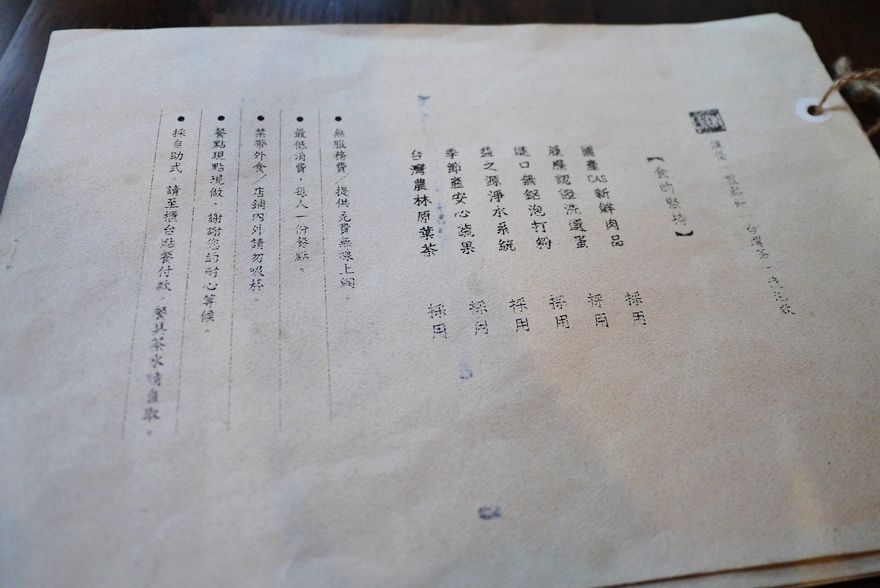 台灣茶
【食的堅持】
國產CAS新鮮肉品 採用
履歷認證洗選蛋 採用
進口無鋁泡打粉 採用
益之源淨水系統 採用
季節 安心蔬果 採用
台灣農林原葉茶 採用
● 無服務費／提供免費無線上網。
● 最低消費，每人一份餐點。
● 禁帶外食／店鋪內外請勿吸菸。
● 餐點現點現做，謝謝您的耐心等候。
● 採自助式 請至櫃台點餐付款，餐具茶水請自取。